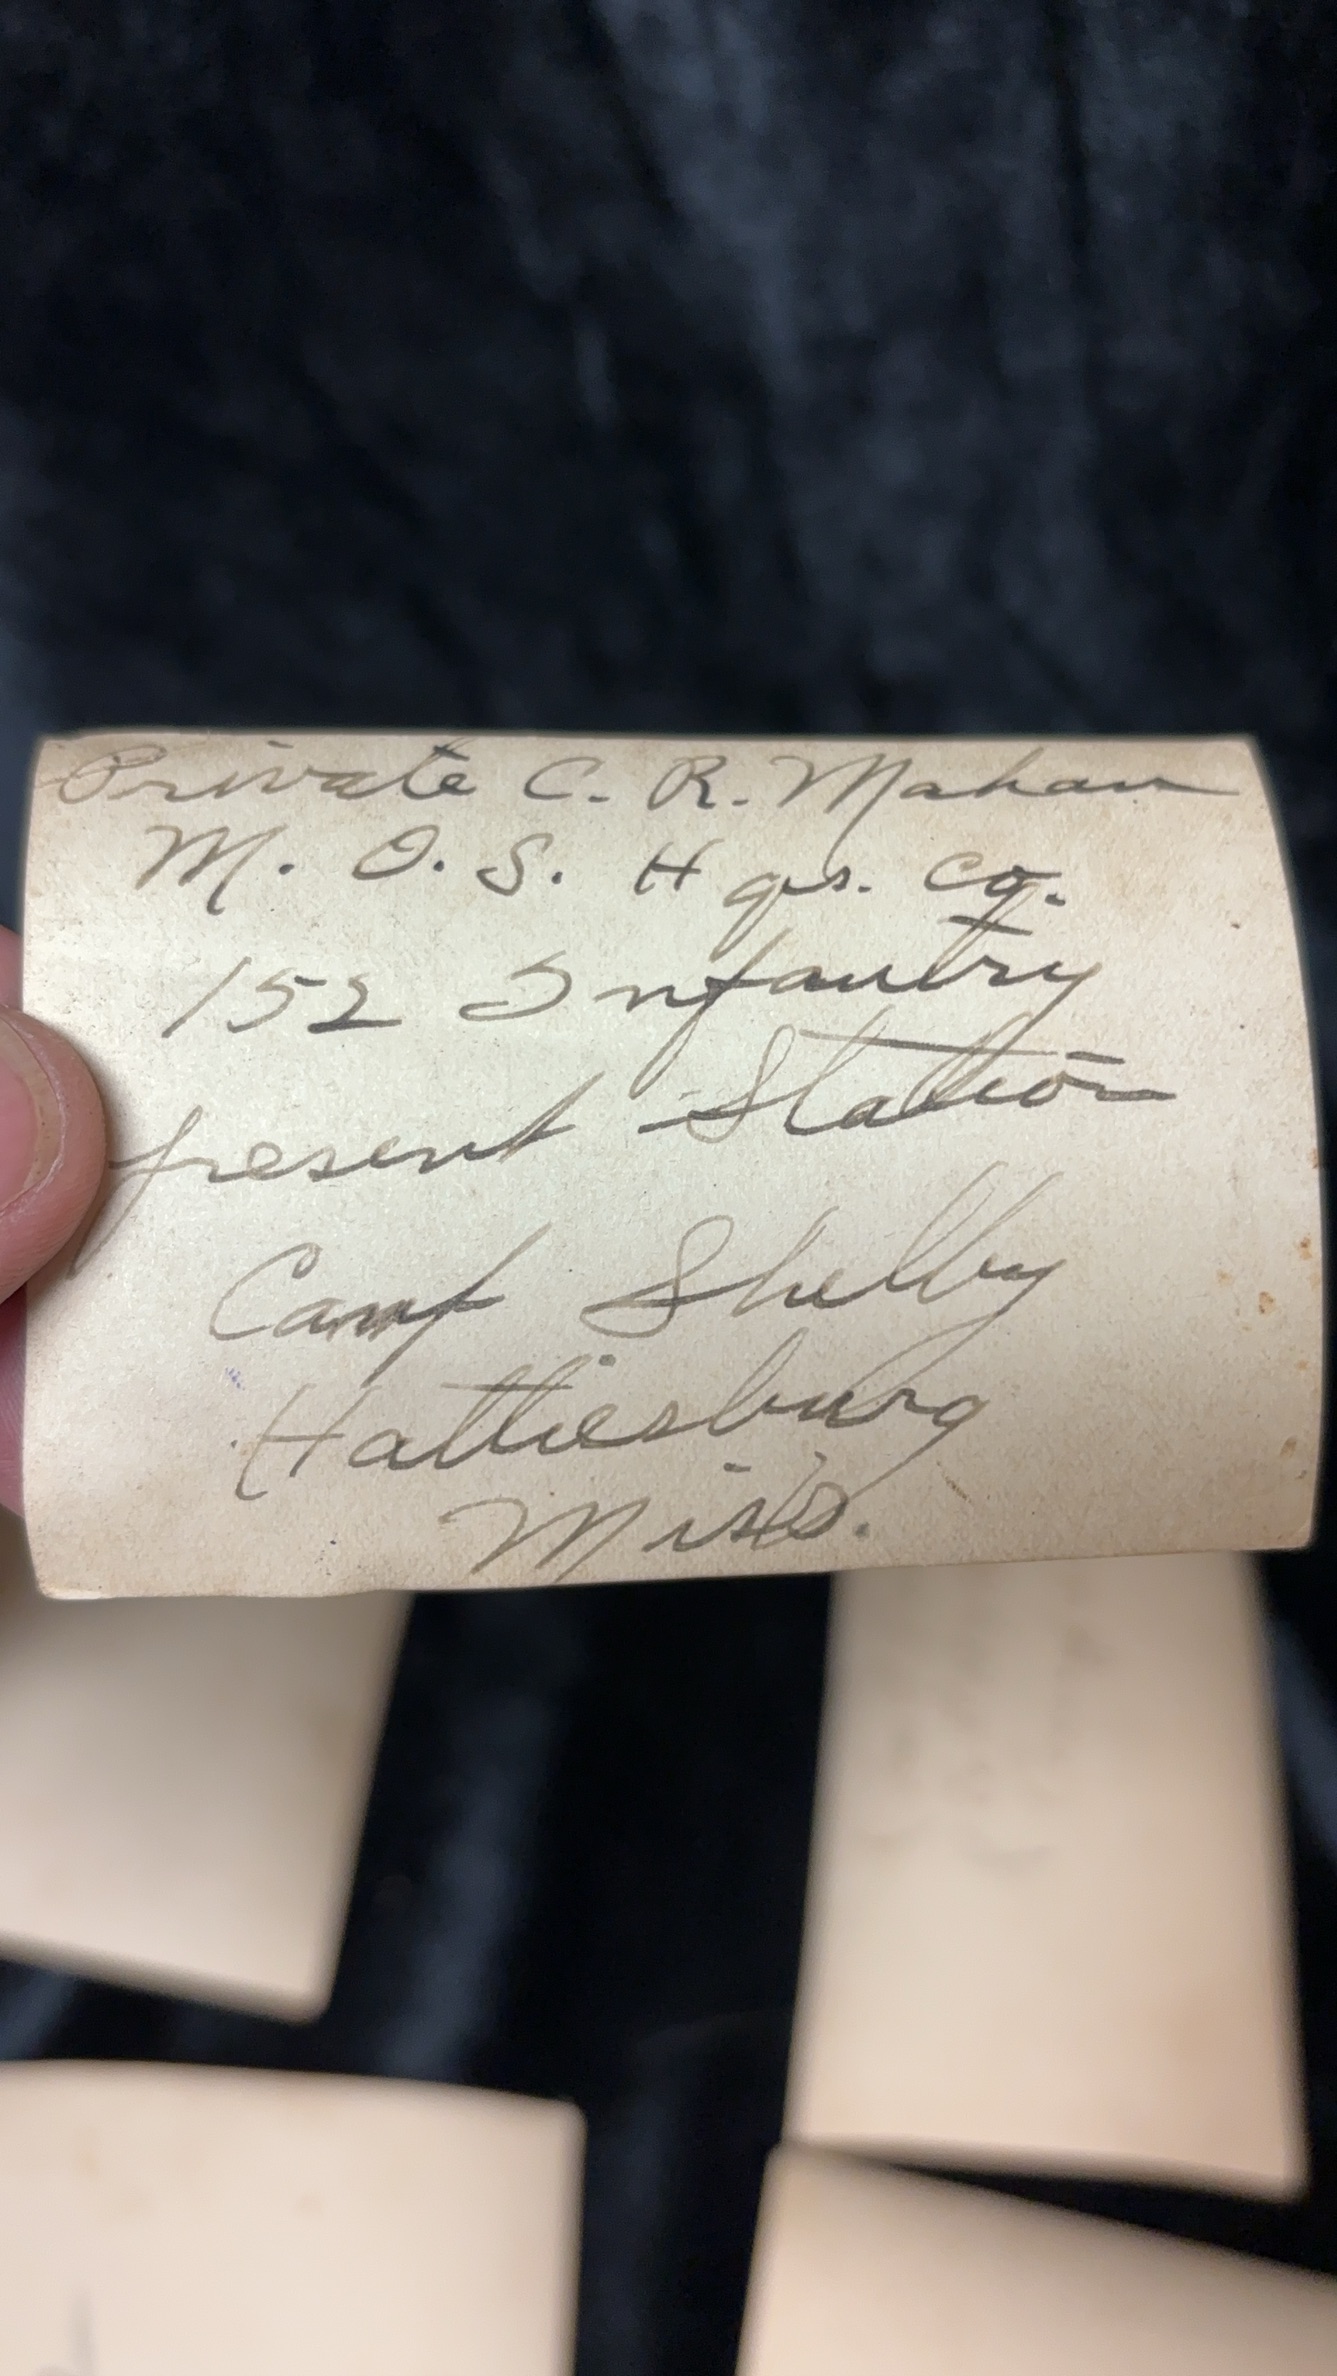 Private C. R. Mahan
M. O. S. Hqrs. Co.
152 Infantry
present Station
Camp Shelby
Hattiesburg
Miss.